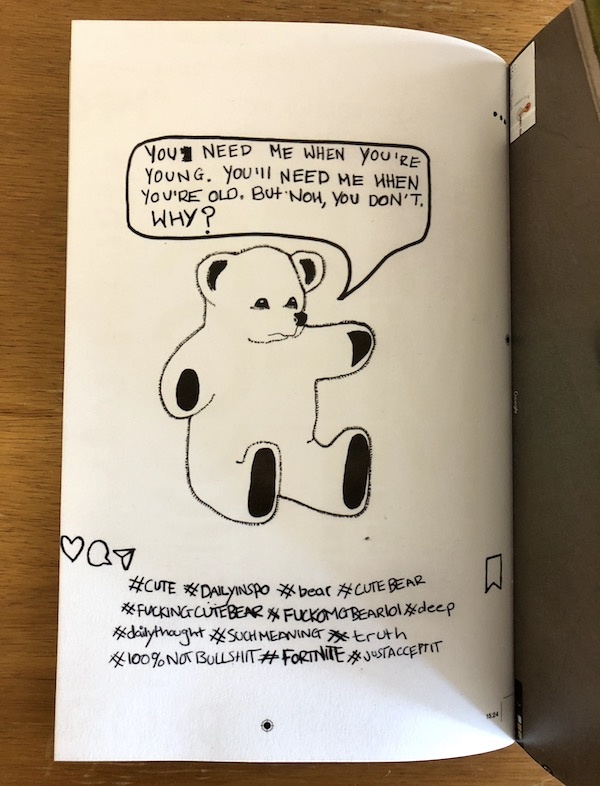 YOU NEED ME WHEN YOU'RE
YOUNG. YOU'll NEED ME WHEN
YOU'RE OLD. BUt NOH, YOU DON'T.
WHY?
#CUTE #DAILYINSPO #bear #CUTE BEAR
#FUCKINGCUTEBEAR #FUCKOMGBEARlol #deep
#dailythought #SUCHMEANING #truth
#100%NOTBULLSHIT #FORTNITE #JUSTACCEPTIT
15:24